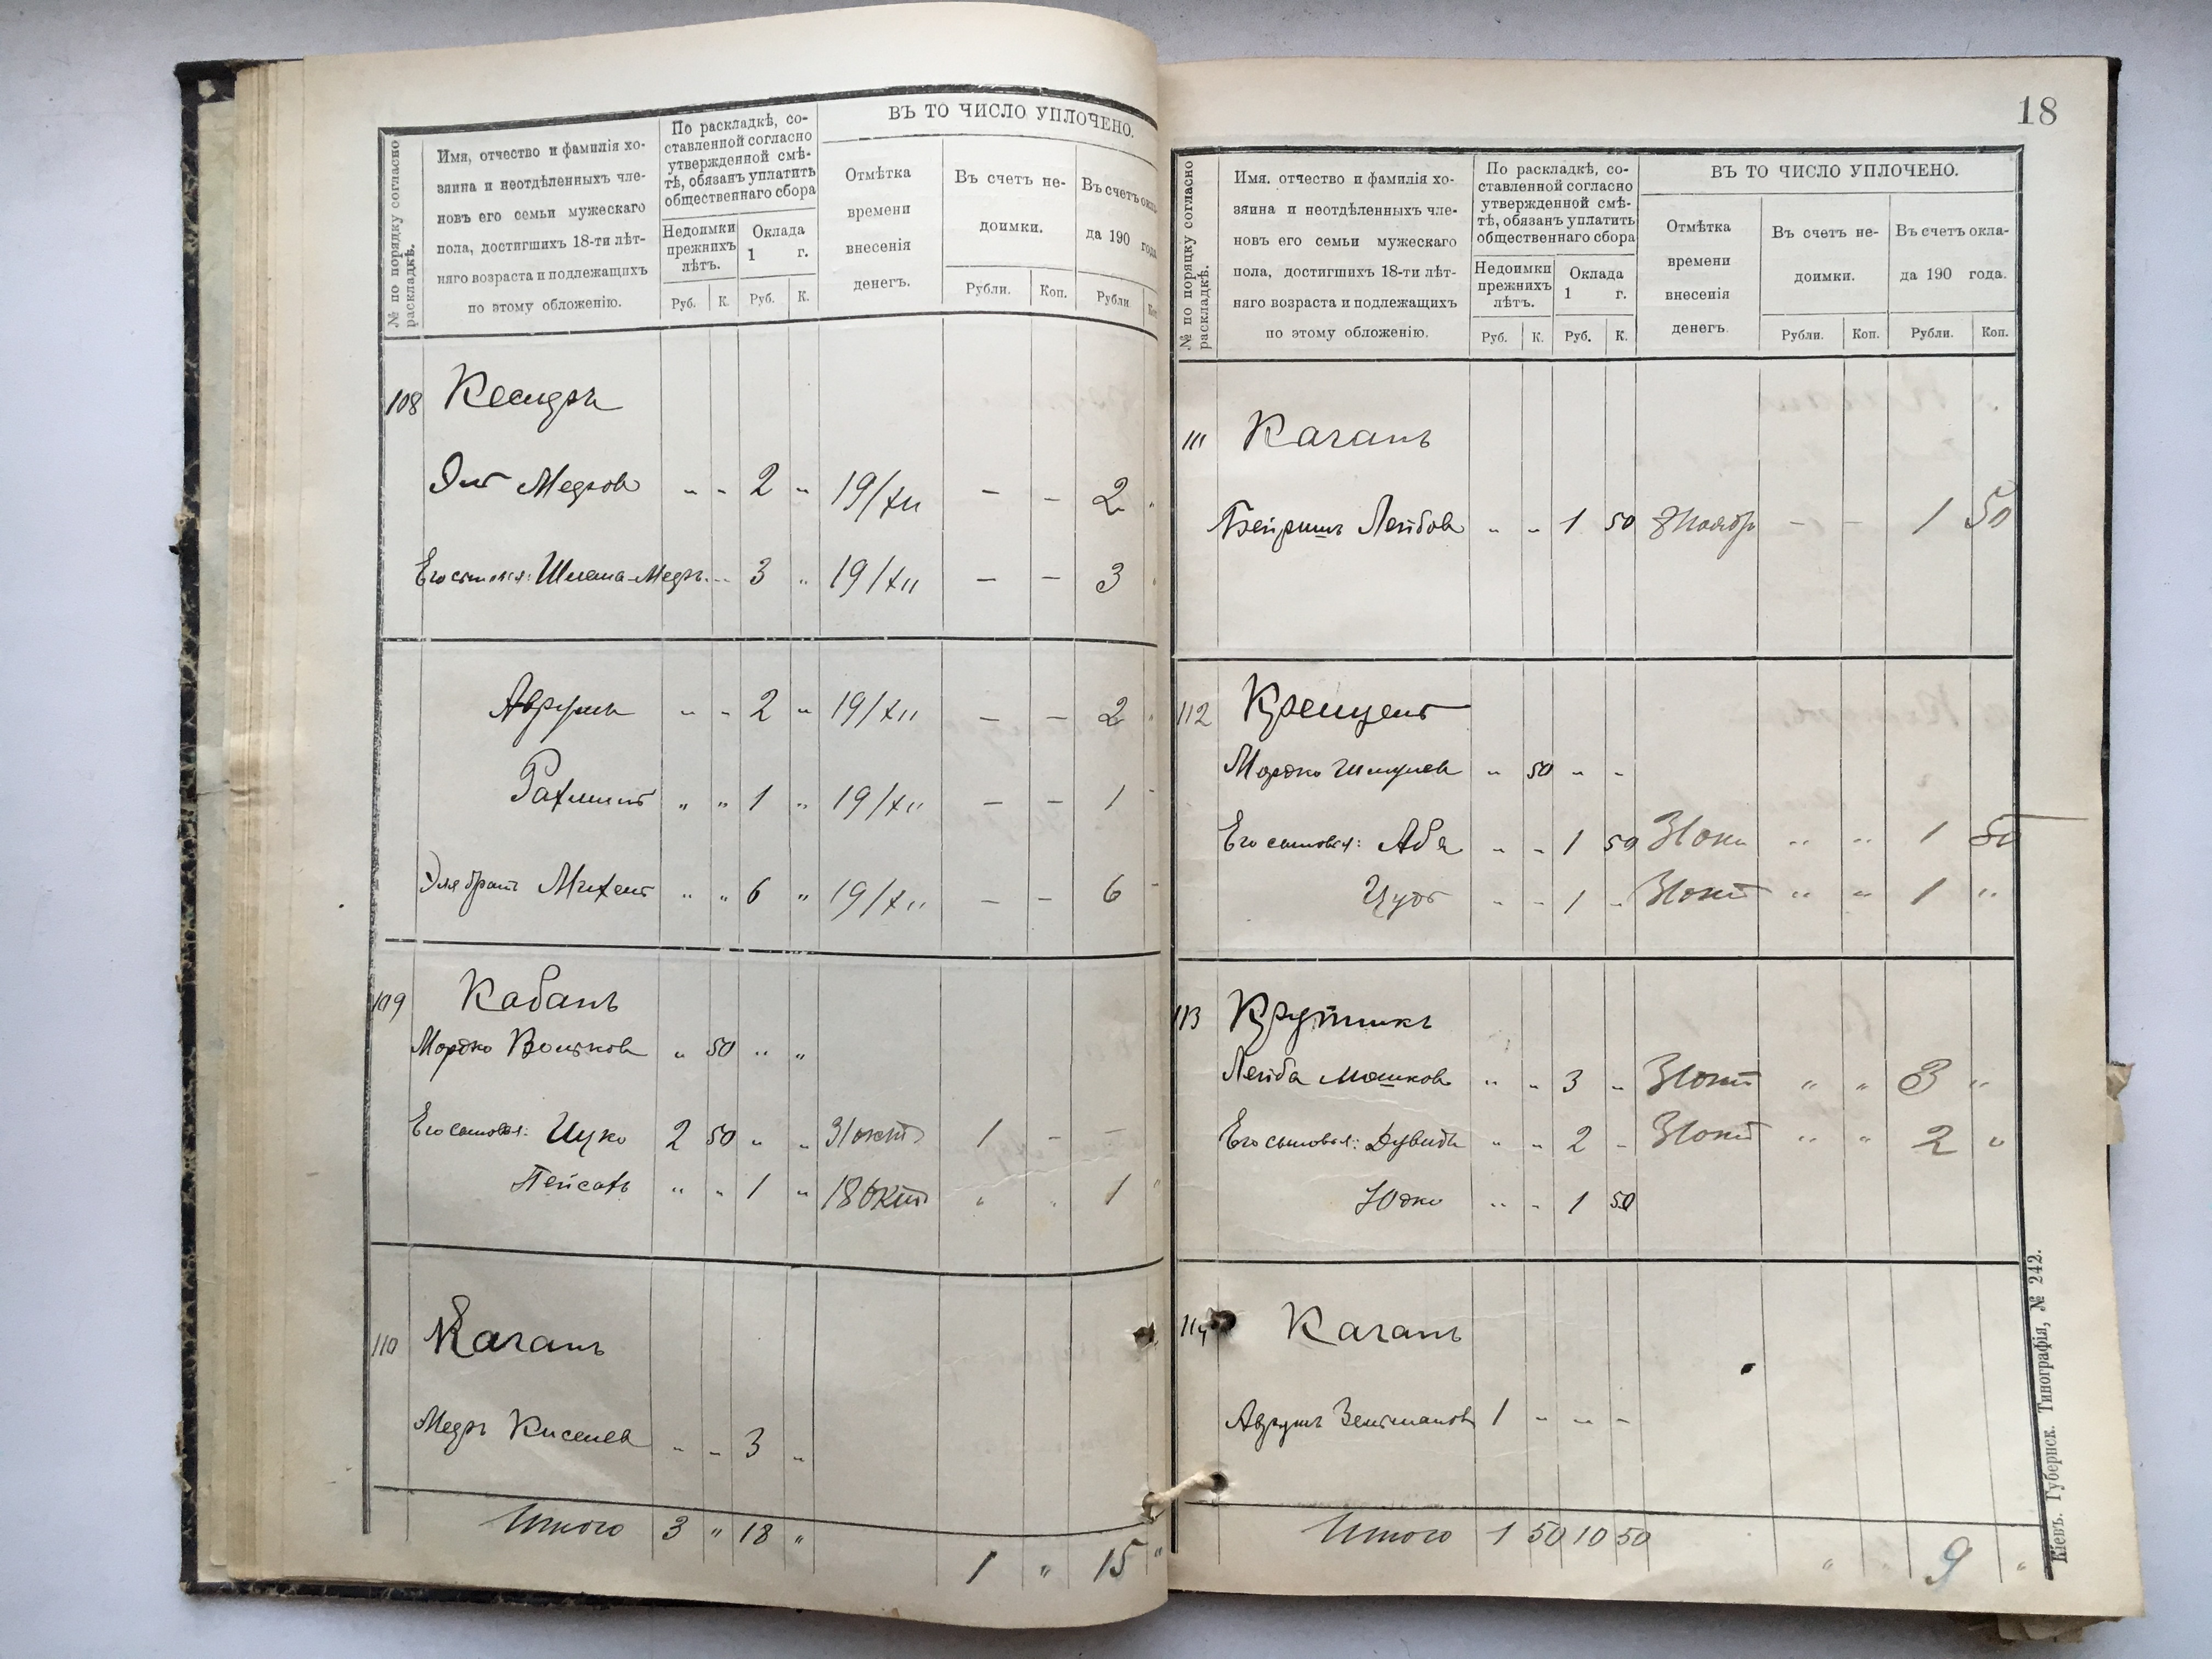 № по порядку согласно раскладкѣ.
Имя, отчество и фамилія хо-
зяина и неотдѣленныхъ чле-
новъ его семьи мужескаго
пола, достигшихъ 18-ти лѣт-
няго возраста и подлежащихъ
по этому обложенію.
По раскладкѣ, со-
ставленной согласно
утвержденной смѣ-
тѣ, обязанъ уплатить
общественнаго сбора
Недоимки
прежнихъ
лѣтъ.
Оклада
1 г.
Руб. К. Руб. К.
ВЪ ТО ЧИСЛО УПЛОЧЕНО.
Отмѣтка
времени
внесенія
денегъ.
Въ счетъ не-
доимки.
Въ счетъ окла-
да 190 года
Рубли. Коп. Рубли
108
" " 2 " 19/XII — — 2 "
Его сыновья: Шлема-Медръ " " 3 " 19/XII — — 3
Аврумъ " " 2 " 19/XII — — 2
Рахмилъ " " 1 " 19/XII — — 1
братъ Михель " " 6 " 19/XII — — 6
109 Кабанъ
Мордко Вольковъ " 50 " "
Его сыновья: Ицко 2 50 " " 31 окт 1 — —
Пейсахъ " " 1 " 18 Окт " " 1
110 Каганъ
Киселев " " 3 "
Итого 3 " 18 "
1 " 15 "
18
№ по порядку согласно раскладкѣ.
Имя. отчество и фамилія хо-
зяина и неотдѣленныхъ чле-
новъ его семьи мужескаго
пола, достигшихъ 18-ти лѣт-
няго возраста и подлежащихъ
по этому обложенію.
По раскладкѣ, со-
ставленной согласно
утвержденной смѣ-
тѣ, обязанъ уплатить
общественнаго сбора
Недоимки
прежнихъ
лѣтъ.
Оклада
1 г.
Руб. К. Руб. К.
ВЪ ТО ЧИСЛО УПЛОЧЕНО.
Отмѣтка
времени
внесенія
денегъ.
Въ счетъ не-
доимки.
Въ счетъ окла-
да 190 года.
Рубли. Коп. Рубли. Коп.
111 Каганъ
Бейришъ Лейбовъ " " 1 50 8 Ноябр — — 1 50
112 Крещент
Мордко Шмулев " 50 " "
Его сыновья: Аба " " 1 50 31 окт " " 1 50
" " 1 " 31 окт " " 1 "
113 Крутикъ
Лейба Мошковъ " " 3 " 31 окт " " 3 "
Его сыновья: Дувидъ " " 2 " 31 окт " " 2 "
Юдко " " 1 50
114 Каганъ
Аврумъ Зельмановъ 1 " " "
Итого 1 50 10 50
" 9 "
Кіевъ. Губернск. Типографія, № 242.